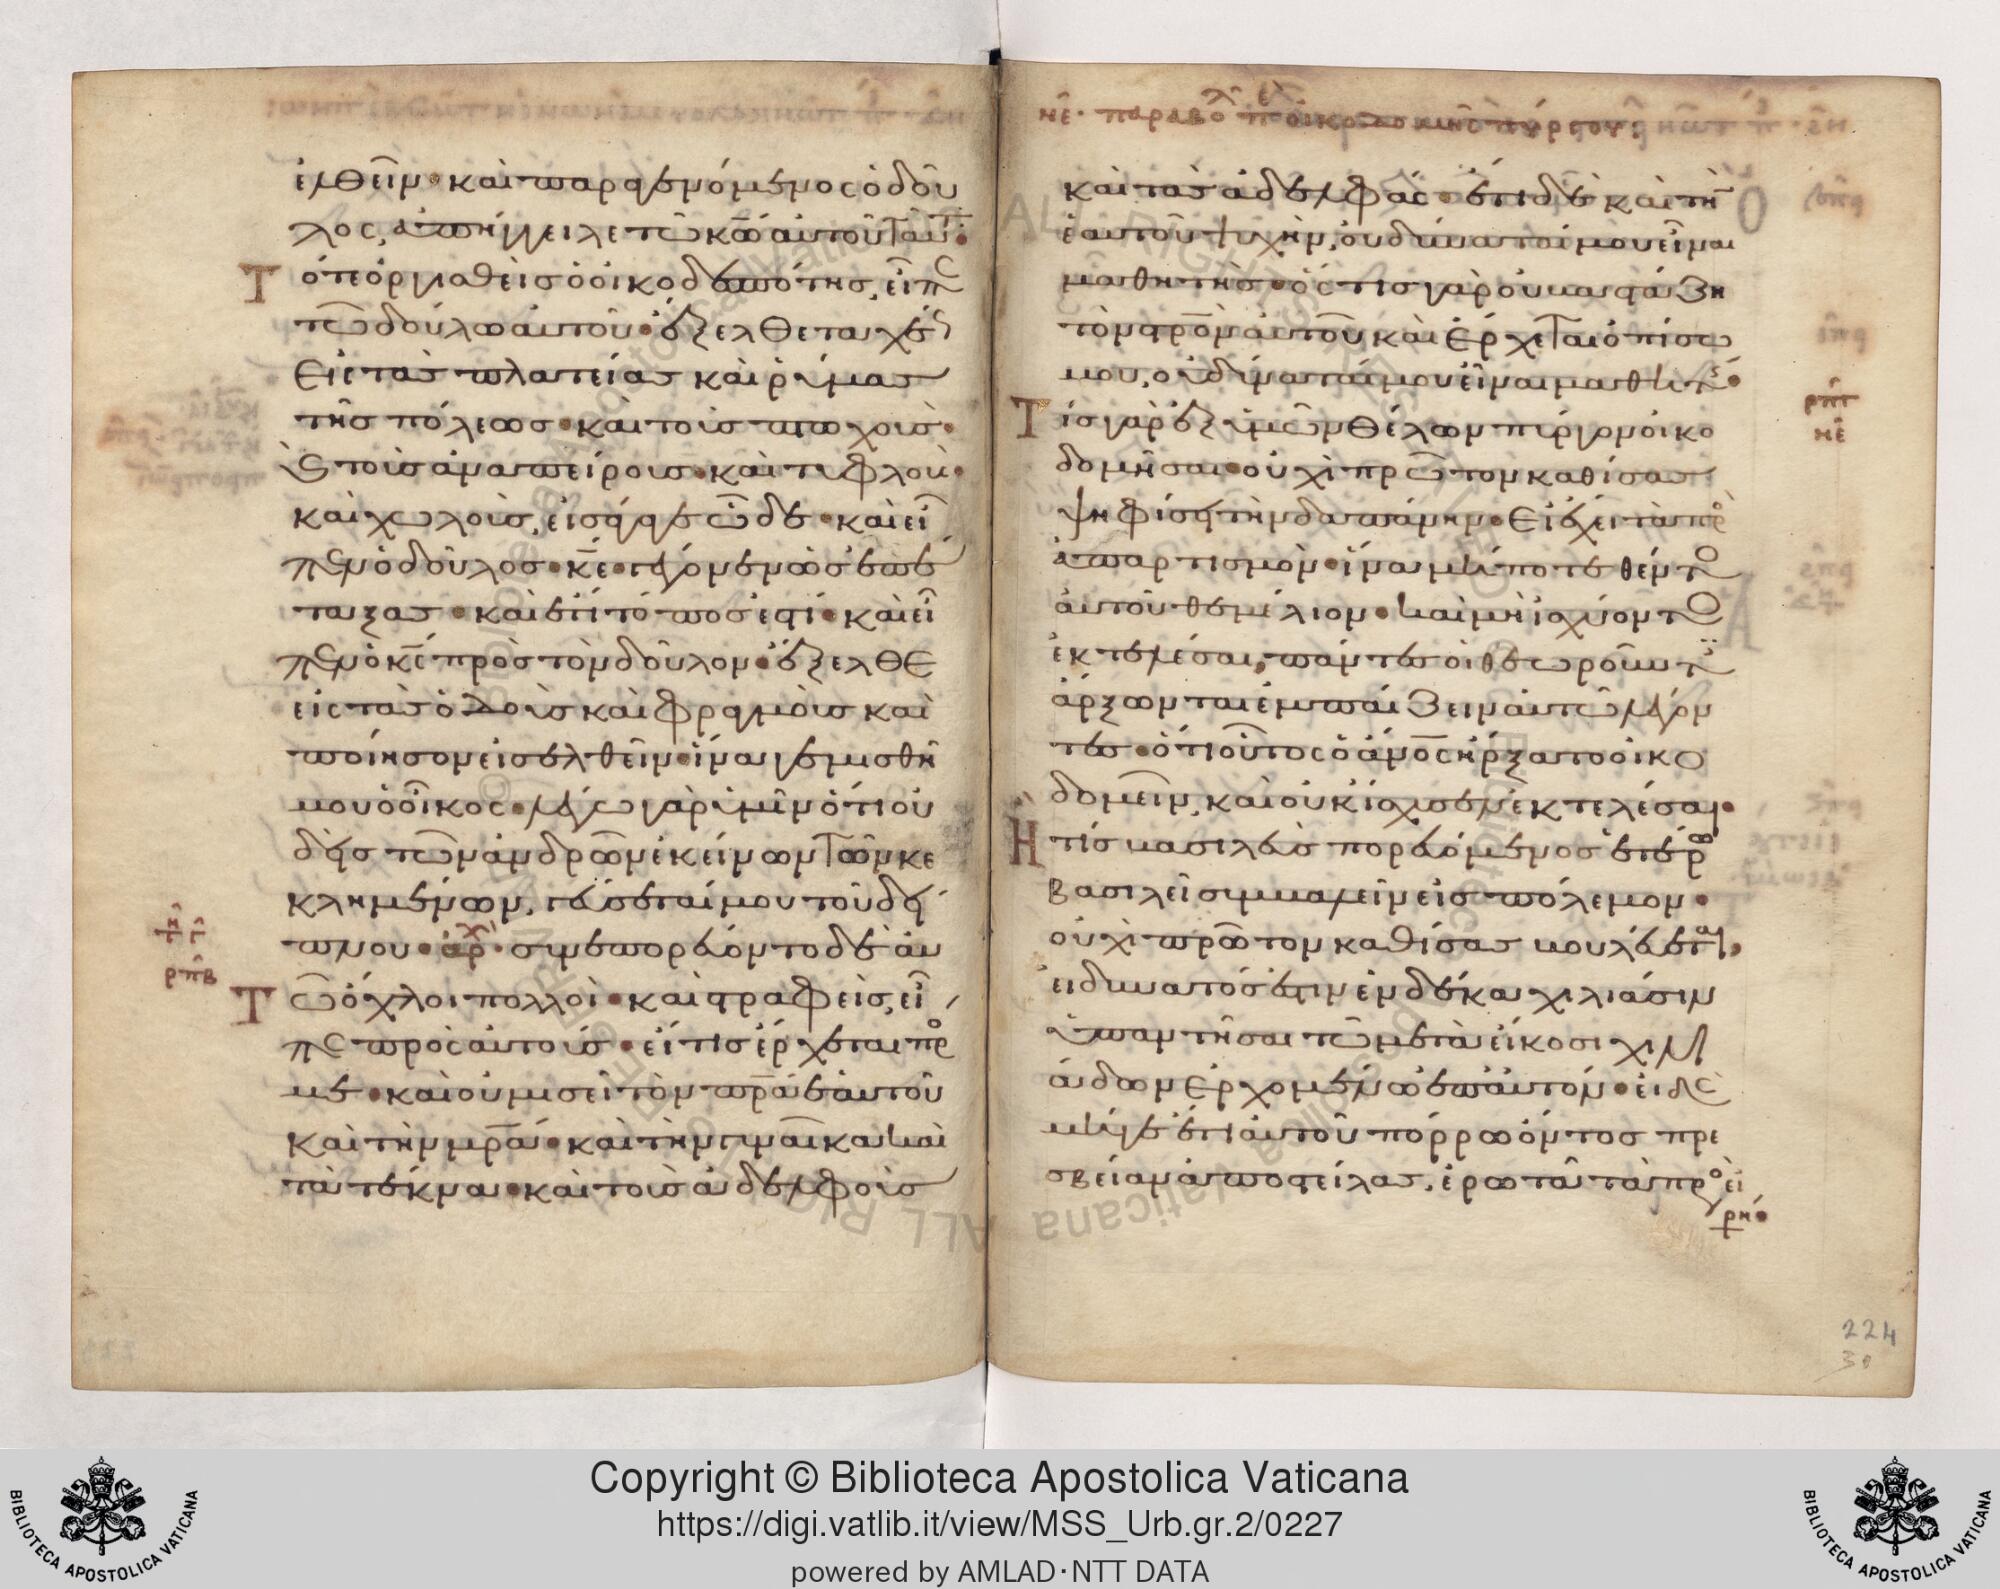 ἐλθεῖν· καὶ παραγενόμενος ὁ δοῦ
λος, ἀπήγγειλε τῶ κῶ αὐτοῦ ταῦτ·
Τότε ὀργισθεὶς ὁ οἰκοδεσπότης, εἶπε
τῶ δούλω αὐτοῦ· ἔξελθε ταχέως
εἰς τὰς πλατείας καὶ ῥύμας
τῆς πόλεως· καὶ τοὺς πτωχοὺς·
καὶ τοὺς ἀναπείρους· καὶ τυφλοὺς·
καὶ χωλοὺς, εἰσάγαγε ὧδε· καὶ εἶ
πεν ὁ δοῦλος· κε· γέγονεν ὡς ἐπέ
ταξας· καὶ ἔτι τόπος ἐστί· καὶ εἶ
πεν ὁ κς πρὸς τὸν δοῦλον· ἔξελθε
εἰς τὰς ὁδοὺς καὶ φραγμοὺς καὶ
ποίησον εἰσελθεῖν· ἵνα γεμισθῆ
μου ὁ οἶκος· λέγω γὰρ ὑμῖν ὅτι οὐ
δεὶς τῶν ἀνδρῶν ἐκείνων τῶν κε
κλημένων, γεύσεταί μου τοῦ δεί
πνου· ἀρχ· συνεπορεύοντο δὲ αὐ
ρπβ
Τῶ ὄχλοι πολλοὶ· καὶ στραφεὶς, εἶ
πε πρὸς αὐτούς· εἴ τις ἔρχεται πρός
με· καὶ οὐ μισεῖ τὸν πρα ἑαυτοῦ
καὶ τὴν μρα· καὶ τὴν γυναῖκα καὶ
τὰ τέκνα· καὶ τοὺς ἀδελφοὺς
νε· παραβολὴ περὶ οἰκοδομῆς πύργου
καὶ τὰς ἀδελφάς· ἔτι δὲ καὶ τὴν
ἑαυτοῦ ψυχὴν, οὐ δύναταί μου εἶναι
μαθητὴς· ὅστις γὰρ οὐ βαστάζη
τὸν στρον αὐτοῦ καὶ ἔρχεται ὀπίσω
μου, οὐ δύναταί μου εἶναι μαθητής·
ρπγ
νε
Τίς γὰρ ἐξ ὑμῶν θέλων πύργον οἰκο
δομῆσαι· οὐχὶ πρῶτον καθίσας
ψηφίσει τὴν δαπάνην· εἰ ἔχει τὰ πρὸς
ἀπαρτισμὸν· ἵνα μήποτε θέντος
αὐτοῦ θεμέλιον· καὶ μὴ ἰσχύοντος
ἐκτελέσαι, πάντες οἱ θεωροῦντες
ἄρξωνται ἐμπαίζειν αὐτῶ λέγον
τες· ὅτι οὗτος ὁ ἄνος ἤρξατο οἰκο
δομεῖν, καὶ οὐκ ἴσχυσεν ἐκτελέσαι·
Ἢ τίς βασιλεὺς πορευόμενος ἑτέρω
βασιλεῖ συμβαλεῖν εἰς πόλεμον·
οὐχὶ πρῶτον καθίσας βουλεύεται,
εἰ δυνατός ἐστιν ἐν δέκα χιλιάσιν
ὑπαντῆσαι τῶ μετὰ εἴκοσι χιλι
άδων ἐρχομένω ἐπ αὐτόν· εἰ δὲ
μήγε ἔτι αὐτοῦ πόρρω ὄντος πρε
σβείαν ἀποστείλας, ἐρωτᾶ τὰ πρὸς εἰ
ρην·
224
30
Copyright © Biblioteca Apostolica Vaticana
https://digi.vatlib.it/view/MSS_Urb.gr.2/0227
powered by AMLAD·NTT DATA
BIBLIOTECA APOSTOLICA VATICANA
BIBLIOTECA APOSTOLICA VATICANA